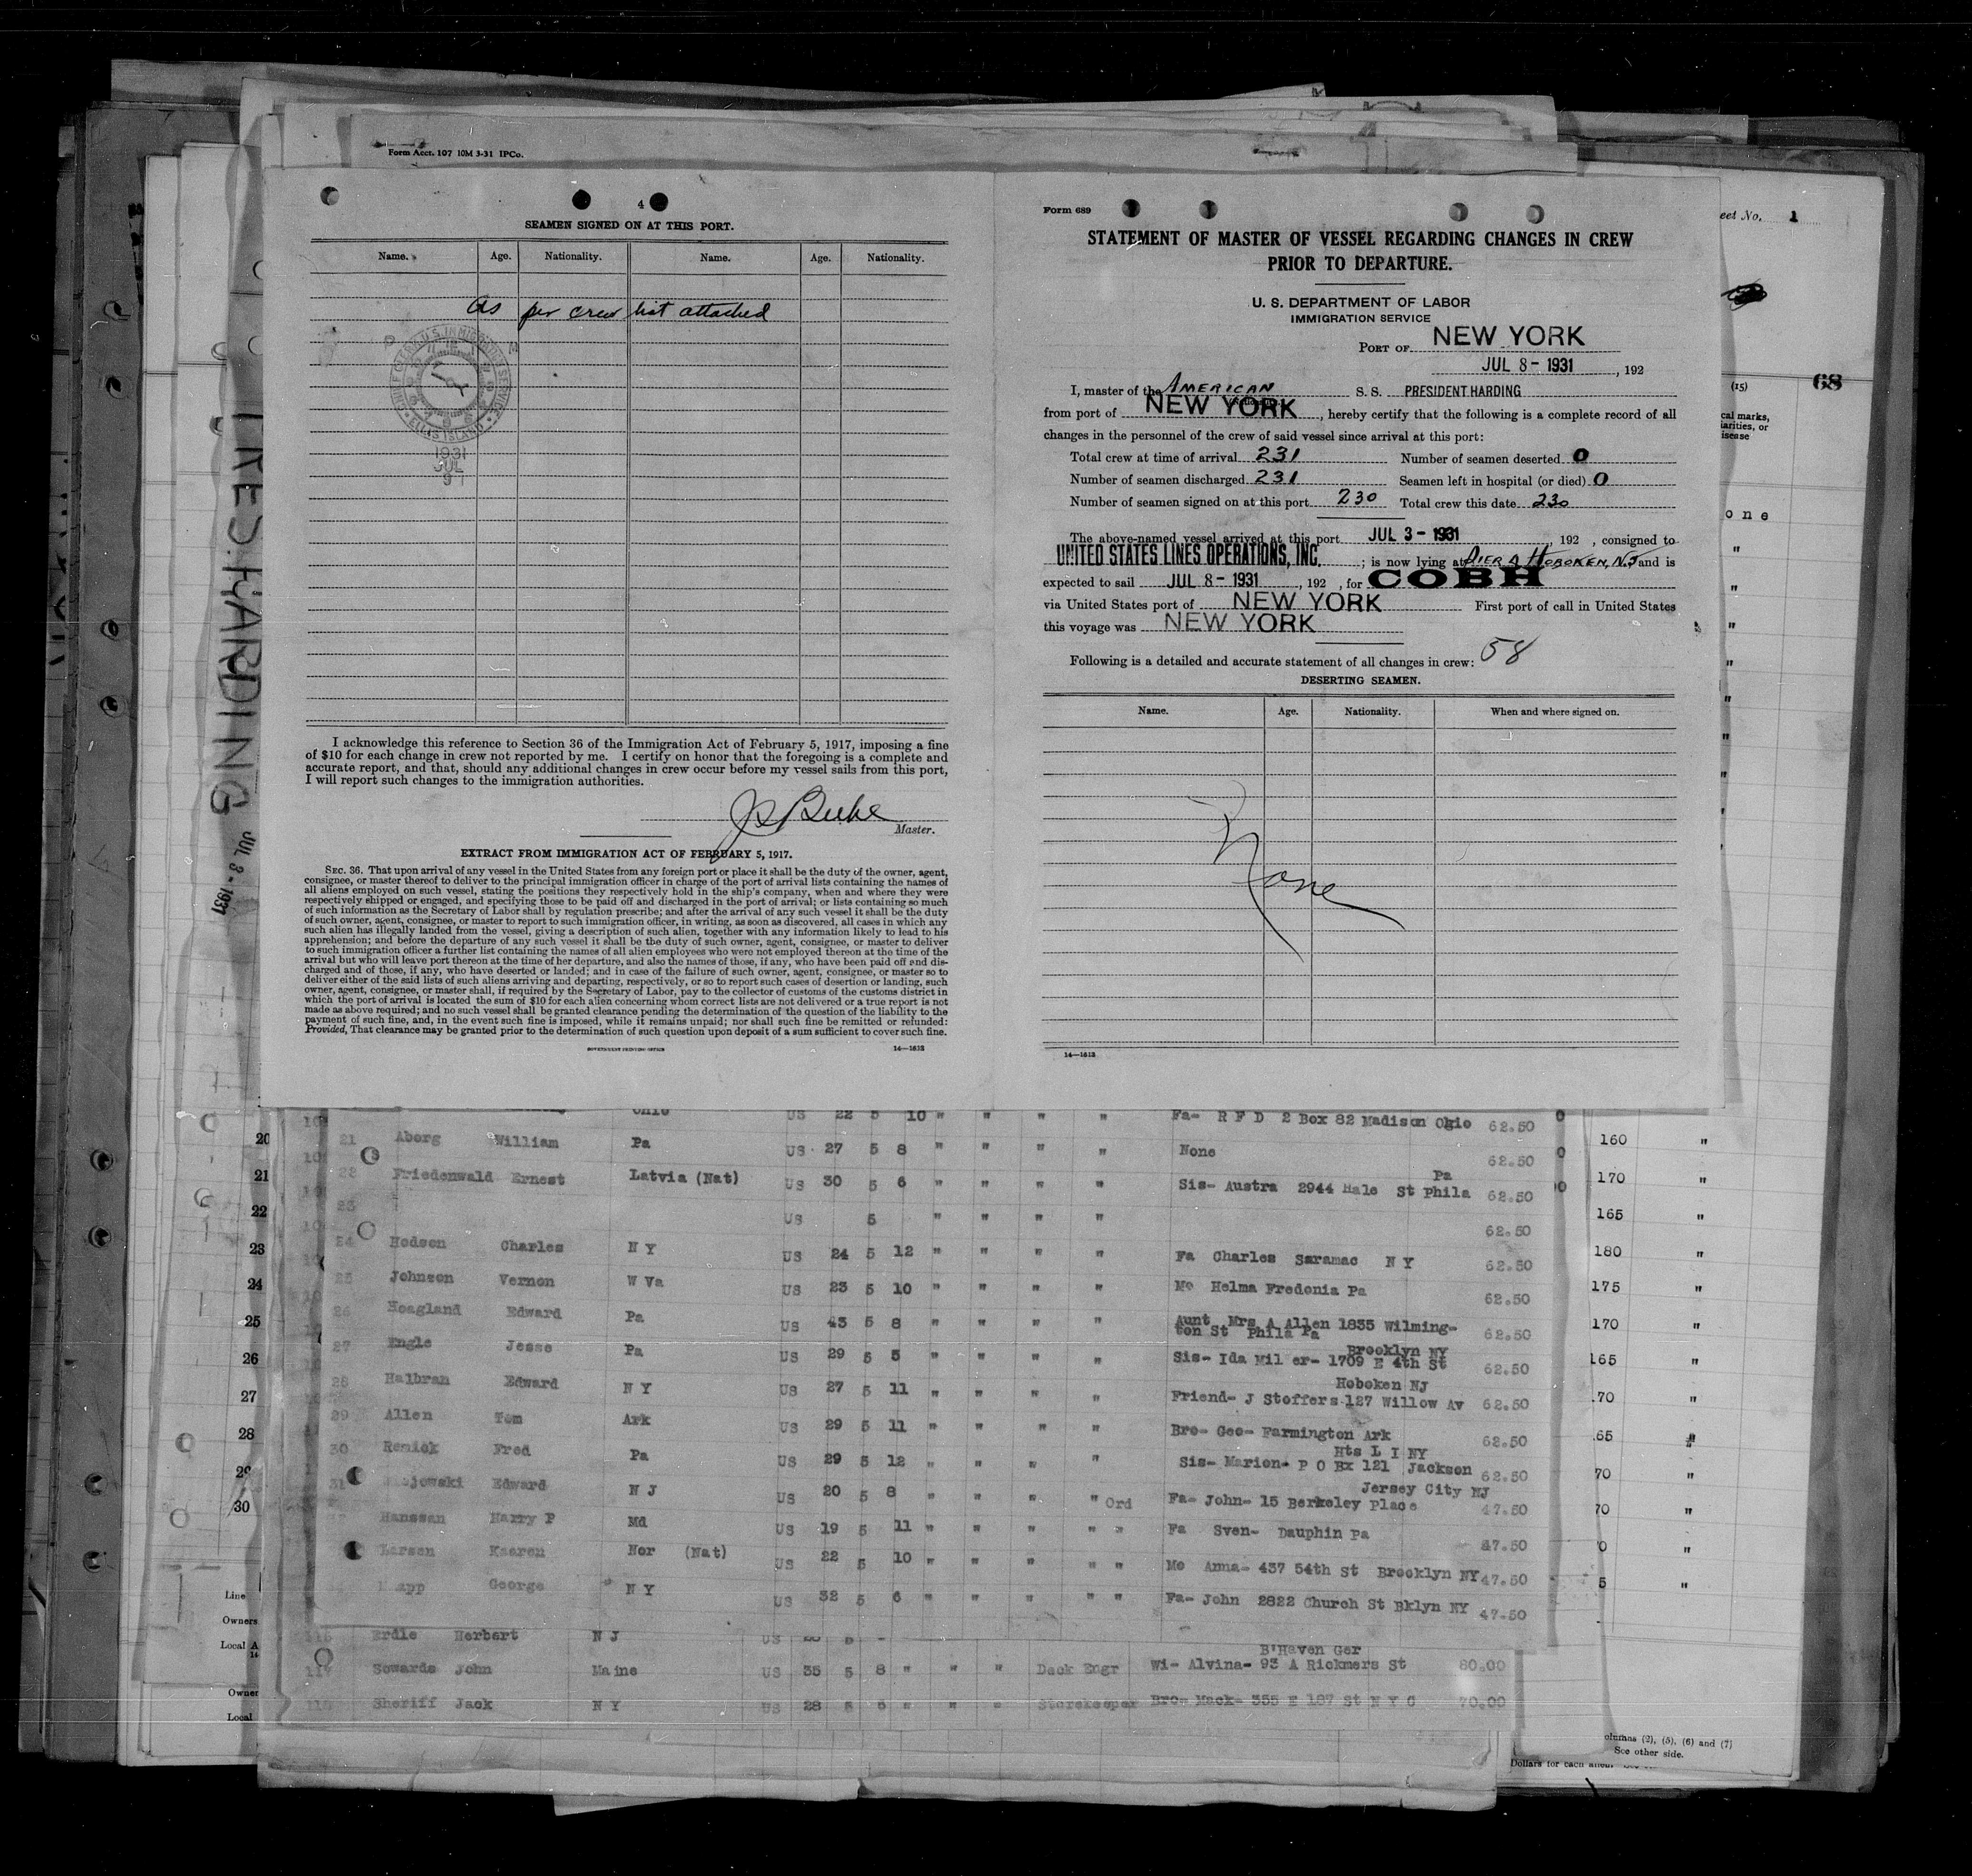 Form Acct. 107 10M 3-31 IPCo.
4
SEAMEN SIGNED ON AT THIS PORT.
Name. Age. Nationality. Name. Age. Nationality.
As per crew list attached
CHIEF CLERK U.S. IMMIGRATION SERVICE
ELLIS ISLAND
1931
JUL
9
I acknowledge this reference to Section 36 of the Immigration Act of February 5, 1917, imposing a fine
of $10 for each change in crew not reported by me. I certify on honor that the foregoing is a complete and
accurate report, and that, should any additional changes in crew occur before my vessel sails from this port,
I will report such changes to the immigration authorities.
Master.
EXTRACT FROM IMMIGRATION ACT OF FEBRUARY 5, 1917.
SEC. 36. That upon arrival of any vessel in the United States from any foreign port or place it shall be the duty of the owner, agent,
consignee, or master thereof to deliver to the principal immigration officer in charge of the port of arrival lists containing the names of
all aliens employed on such vessel, stating the positions they respectively hold in the ship's company, when and where they were
respectively shipped or engaged, and specifying those to be paid off and discharged in the port of arrival; or lists containing so much
of such information as the Secretary of Labor shall by regulation prescribe; and after the arrival of any such vessel it shall be the duty
of such owner, agent, consignee, or master to report to such immigration officer, in writing, as soon as discovered, all cases in which any
such alien has illegally landed from the vessel, giving a description of such alien, together with any information likely to lead to his
apprehension; and before the departure of any such vessel it shall be the duty of such owner, agent, consignee, or master to deliver
to such immigration officer a further list containing the names of all alien employees who were not employed thereon at the time of the
arrival but who will leave port thereon at the time of her departure, and also the names of those, if any, who have been paid off and dis-
charged and of those, if any, who have deserted or landed; and in case of the failure of such owner, agent, consignee, or master so to
deliver either of the said lists of such aliens arriving and departing, respectively, or so to report such cases of desertion or landing, such
owner, agent, consignee, or master shall, if required by the Secretary of Labor, pay to the collector of customs of the customs district in
which the port of arrival is located the sum of $10 for each alien concerning whom correct lists are not delivered or a true report is not
made as above required; and no such vessel shall be granted clearance pending the determination of the question of the liability to the
payment of such fine, and, in the event such fine is imposed, while it remains unpaid; nor shall such fine be remitted or refunded:
Provided, That clearance may be granted prior to the determination of such question upon deposit of a sum sufficient to cover such fine.
GOVERNMENT PRINTING OFFICE 14—1613
Form 689
STATEMENT OF MASTER OF VESSEL REGARDING CHANGES IN CREW
PRIOR TO DEPARTURE.
U. S. DEPARTMENT OF LABOR
IMMIGRATION SERVICE
PORT OF NEW YORK
JUL 8 - 1931, 192
I, master of the AMERICAN S. S. PRESIDENT HARDING
from port of NEW YORK, hereby certify that the following is a complete record of all
changes in the personnel of the crew of said vessel since arrival at this port:
Total crew at time of arrival 231 Number of seamen deserted 0
Number of seamen discharged 231 Seamen left in hospital (or died) 0
Number of seamen signed on at this port 230 Total crew this date 230
The above-named vessel arrived at this port JUL 3 - 1931, 192 , consigned to
UNITED STATES LINES OPERATIONS, INC. ; is now lying at PIER 4 HOBOKEN, N.J. and is
expected to sail JUL 8 - 1931, 192 , for COBH
via United States port of NEW YORK First port of call in United States
this voyage was NEW YORK
Following is a detailed and accurate statement of all changes in crew: 58
DESERTING SEAMEN.
Name. Age. Nationality. When and where signed on.
None
14—1613
eet No. 1
(15) 68
cal marks,
iarities, or
isease
one
PRES. HARDING
JUL 3 - 1931
Ohio US 22 5 10 " " " " Fa- R F D 2 Box 82 Madison Ohio 62.50
21 Aborg William Pa US 27 5 8 " " " " None 62.50
22 Friedenwald Ernest Latvia (Nat) US 30 5 6 " " " " Sis- Austra 2944 Hale St Phila Pa 62.50
23 US 5 " " " " 62.50
24 Hodson Charles N Y US 24 5 12 " " " " Fa Charles Saramac N Y 62.50
25 Johnson Vernon W Va US 23 5 10 " " " " Mo Helma Fredonia Pa 62.50
26 Hoagland Edward Pa US 43 5 8 " " " " Aunt Mrs A Allen 1835 Wilming-
ton St Phila Pa 62.50
27 Engle Jesse Pa US 29 5 5 " " " " Sis- Ida Mil er- 1709 E 4th St Brooklyn NY 62.50
28 Halbran Edward N Y US 27 5 11 " " " " Friend- J Stoffers 127 Willow Av Hoboken NJ 62.50
29 Allen Tom Ark US 29 5 11 " " " " Bro- Geo- Farmington Ark 62.50
30 Remick Fred Pa US 29 5 12 " " " " Sis- Marion- P O Bx 121 Jackson Hts L I NY 62.50
31 jewski Edward N J US 20 5 8 " " " " Ord Fa- John- 15 Berkeley Place Jersey City NJ 47.50
Hanssen Harry P Md US 19 5 11 " " " " " Fa Sven- Dauphin Pa 47.50
Larsen Kaeren Nor (Nat) US 22 5 10 " " " " " Mo Anna- 437 54th St Brooklyn NY 47.50
app George N Y US 32 5 6 " " " " " Fa- John 2822 Church St Bklyn NY 47.50
Erdle Herbert N J US
B'Haven Ger
117 Sowards John Maine US 35 5 8 " " " Deck Engr Wi- Alvina- 93 A Rickmers St 80.00
118 Sheriff Jack N Y US 28 5 6 " " " Storekeeper Bro- Mack- 355 E 187 St N Y C 70.00
20
21
22
23
24
25
26
27
28
29
30
Line
Owners
Local A
14
Owner
Local
160 "
170 "
165 "
180 "
175 "
170 "
165 "
70 "
65 "
70 "
70 "
0 "
5 "
olumns (2), (5), (6) and (7)
See other side.
Dollars for each alien.